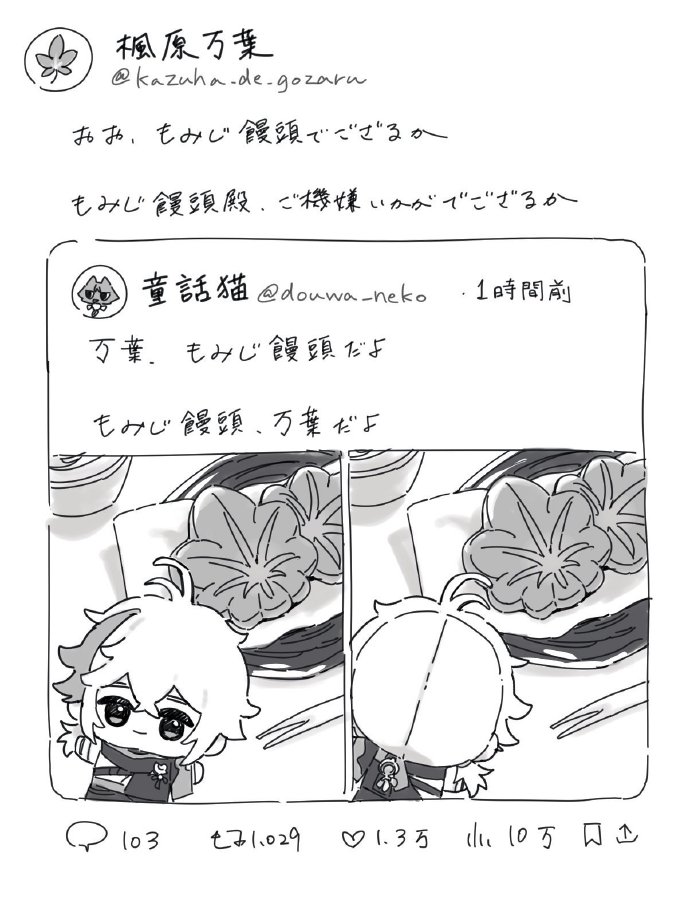 楓原万葉
@kazuha_de_gozaru
おお、もみじ饅頭でござるか
もみじ饅頭殿、ご機嫌いかがでござるか
童話猫 @douwa_neko ・1時間前
万葉、もみじ饅頭だよ
もみじ饅頭、万葉だよ
103 1.029 1.3万 10万